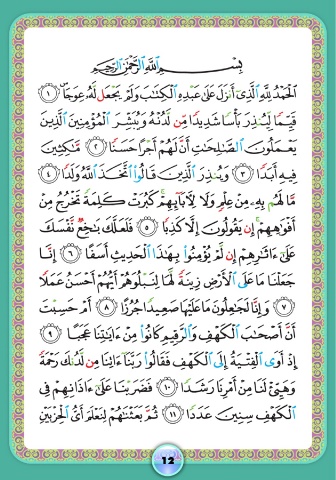 بِسْمِ اللَّهِ الرَّحْمَٰنِ الرَّحِيمِ
الْحَمْدُ لِلَّهِ الَّذِي أَنزَلَ عَلَىٰ عَبْدِهِ الْكِتَابَ وَلَمْ يَجْعَل لَّهُ عِوَجًا ۜ ١
قَيِّمًا لِّيُنذِرَ بَأْسًا شَدِيدًا مِّن لَّدُنْهُ وَيُبَشِّرَ الْمُؤْمِنِينَ الَّذِينَ
يَعْمَلُونَ الصَّالِحَاتِ أَنَّ لَهُمْ أَجْرًا حَسَنًا ٢ مَّاكِثِينَ
فِيهِ أَبَدًا ٣ وَيُنذِرَ الَّذِينَ قَالُوا اتَّخَذَ اللَّهُ وَلَدًا ٤
مَّا لَهُم بِهِ مِنْ عِلْمٍ وَلَا لِآبَائِهِمْ ۚ كَبُرَتْ كَلِمَةً تَخْرُجُ مِنْ
أَفْوَاهِهِمْ ۚ إِن يَقُولُونَ إِلَّا كَذِبًا ٥ فَلَعَلَّكَ بَاخِعٌ نَّفْسَكَ
عَلَىٰ آثَارِهِمْ إِن لَّمْ يُؤْمِنُوا بِهَٰذَا الْحَدِيثِ أَسَفًا ٦ إِنَّا
جَعَلْنَا مَا عَلَى الْأَرْضِ زِينَةً لَّهَا لِنَبْلُوَهُمْ أَيُّهُمْ أَحْسَنُ عَمَلًا
٧ وَإِنَّا لَجَاعِلُونَ مَا عَلَيْهَا صَعِيدًا جُرُزًا ٨ أَمْ حَسِبْتَ
أَنَّ أَصْحَابَ الْكَهْفِ وَالرَّقِيمِ كَانُوا مِنْ آيَاتِنَا عَجَبًا ٩
إِذْ أَوَى الْفِتْيَةُ إِلَى الْكَهْفِ فَقَالُوا رَبَّنَا آتِنَا مِن لَّدُنكَ رَحْمَةً
وَهَيِّئْ لَنَا مِنْ أَمْرِنَا رَشَدًا ١٠ فَضَرَبْنَا عَلَىٰ آذَانِهِمْ فِي
الْكَهْفِ سِنِينَ عَدَدًا ١١ ثُمَّ بَعَثْنَاهُمْ لِنَعْلَمَ أَيُّ الْحِزْبَيْنِ
12